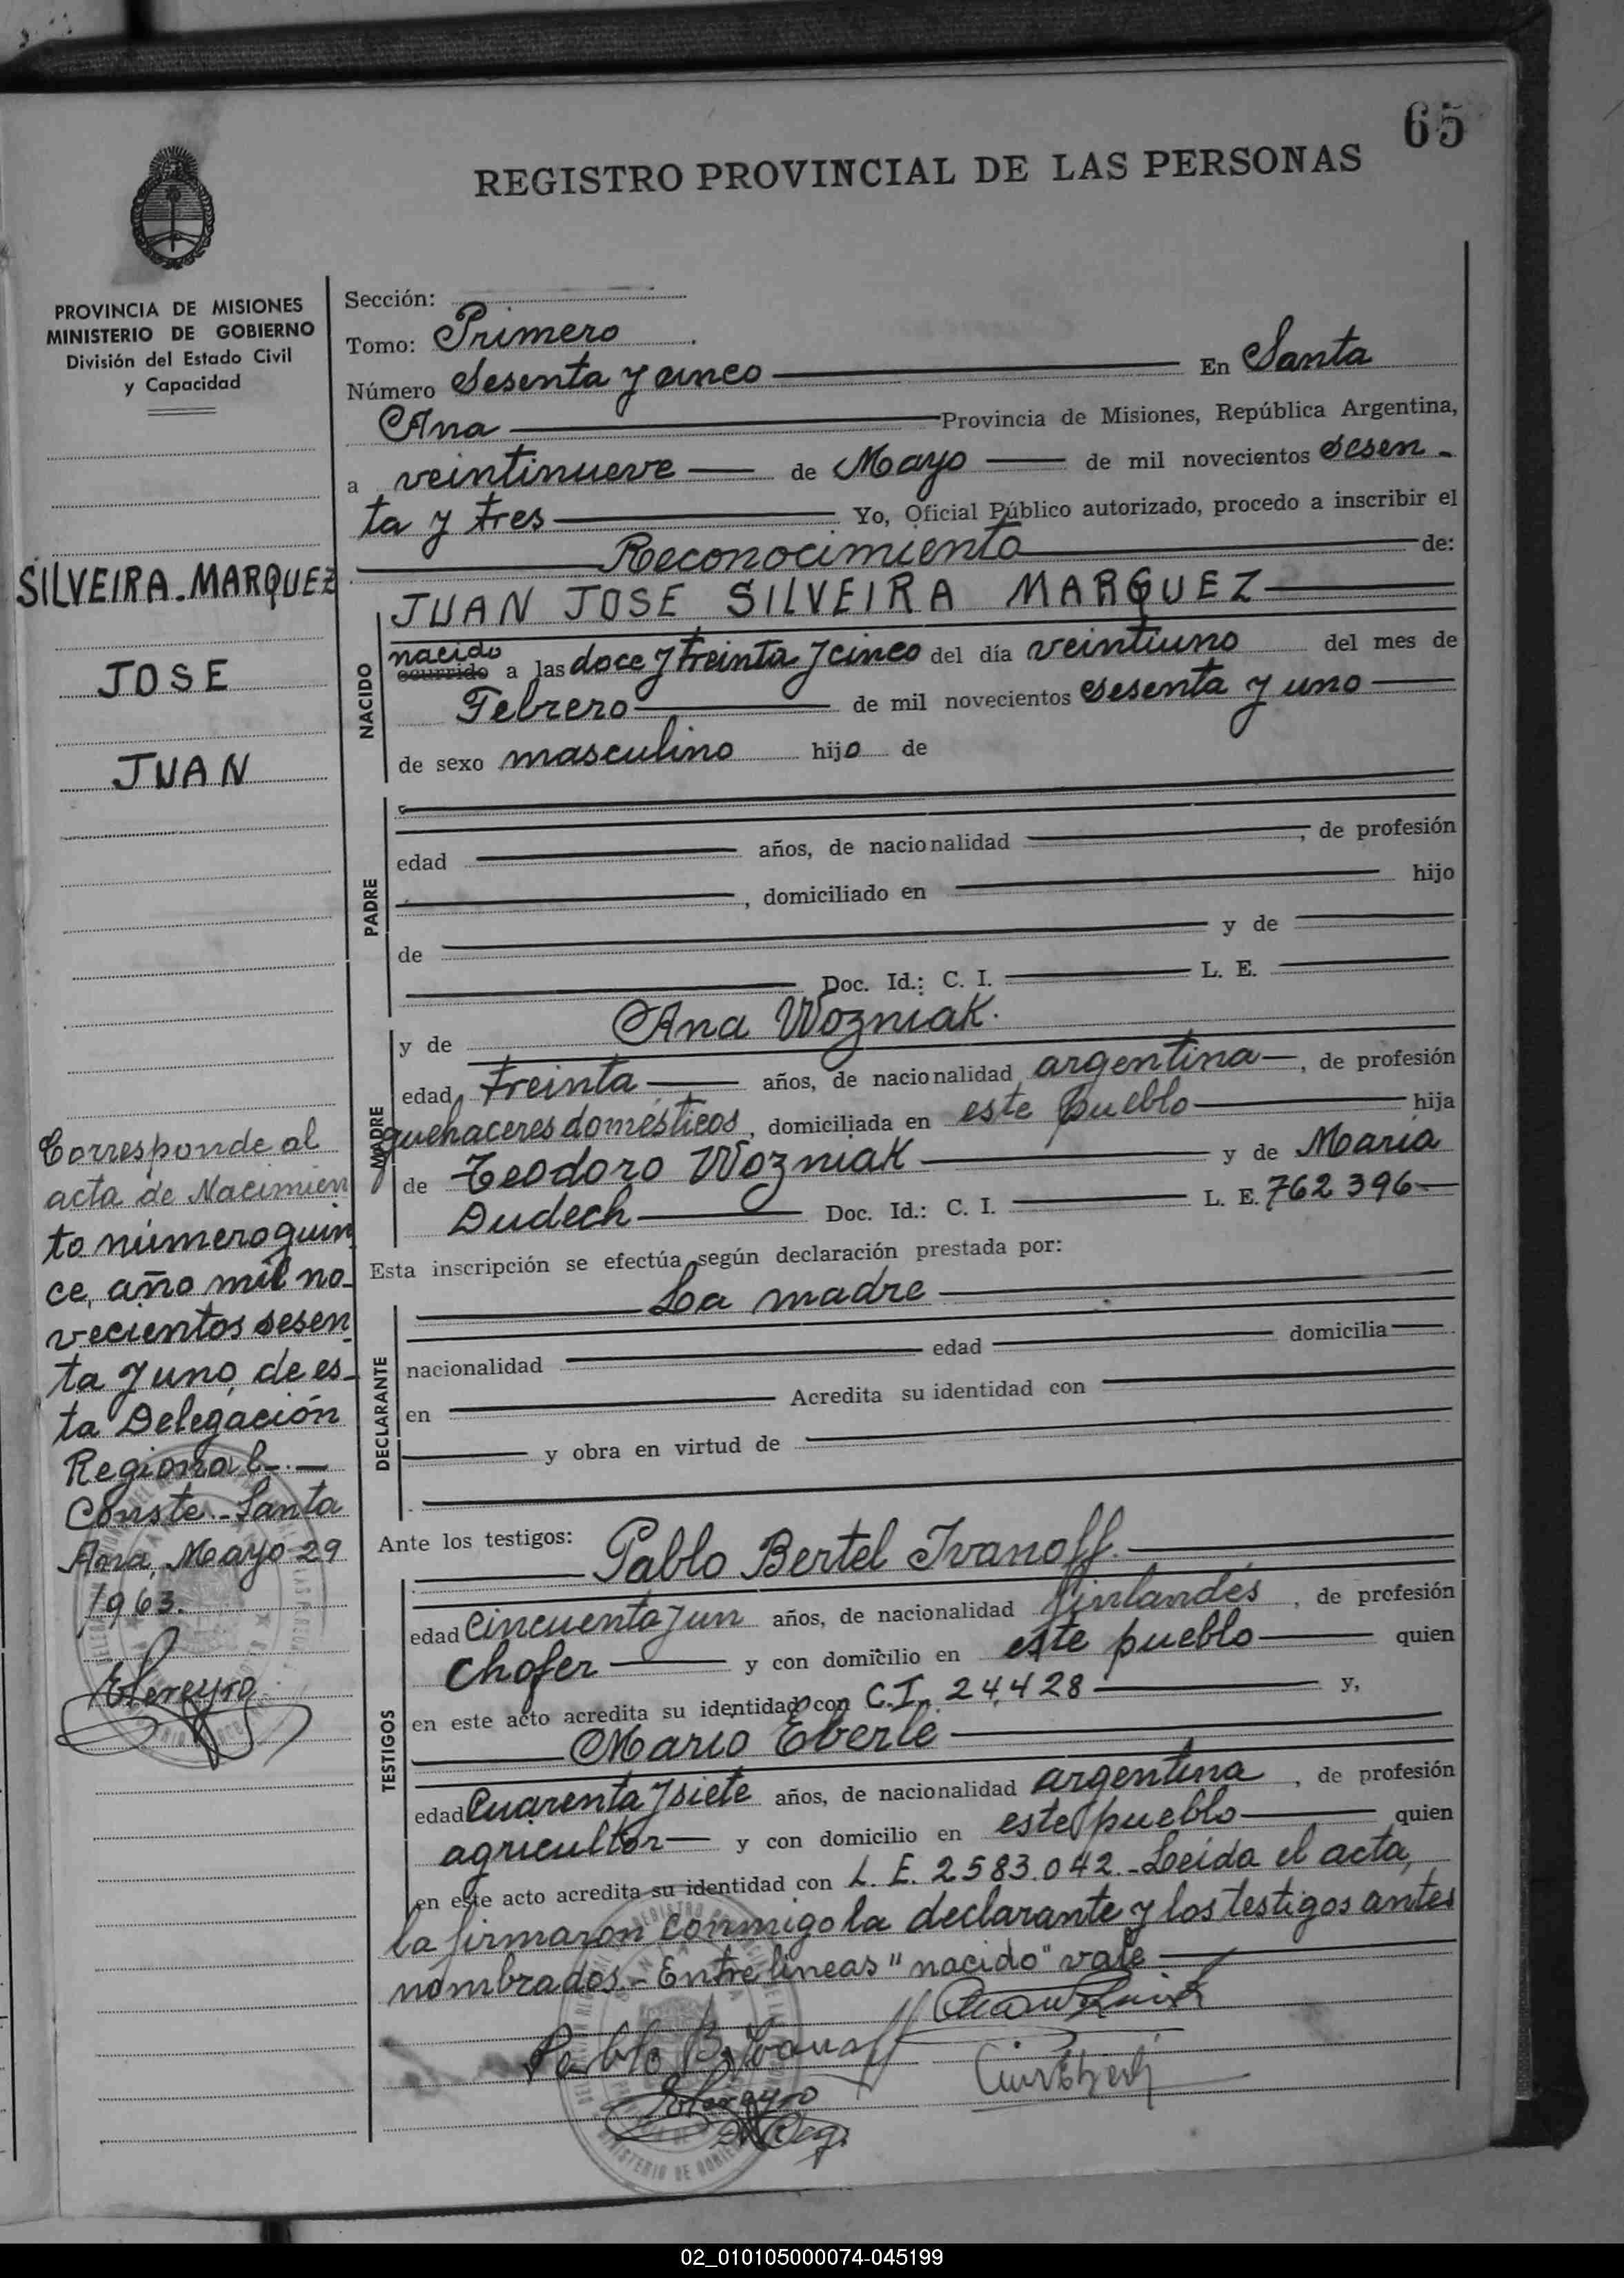 65
REGISTRO PROVINCIAL DE LAS PERSONAS
PROVINCIA DE MISIONES
MINISTERIO DE GOBIERNO
División del Estado Civil
y Capacidad
SILVEIRA-MARQUEZ
JOSE
JUAN
Corresponde al
acta de Nacimien
to número quin
ce, año mil no-
vecientos sesen
ta y uno, de es-
ta Delegación
Regional.-
Conste.-Santa
Ana, Mayo 29
1963.
Sección:
Tomo: Primero
Número Sesenta y cinco En Santa
Ana Provincia de Misiones, República Argentina,
a veintinueve de Mayo de mil novecientos sesen-
ta y tres Yo, Oficial Público autorizado, procedo a inscribir el
Reconocimiento de:
NACIDO
JUAN JOSE SILVEIRA MARQUEZ
nacido
ocurrido a las doce y treinta y cinco del día veintiuno del mes de
Febrero de mil novecientos sesenta y uno
de sexo masculino hijo de
PADRE
edad años, de nacionalidad , de profesión
, domiciliado en hijo
de y de
Doc. Id.: C. I. L. E.
MADRE
y de Ana Wozniak.
edad treinta años, de nacionalidad argentina, de profesión
quehaceres domésticos, domiciliada en este pueblo hija
de Teodoro Wozniak y de María
Dudech Doc. Id.: C. I. L. E. 762396
Esta inscripción se efectúa según declaración prestada por:
DECLARANTE
La madre
nacionalidad edad domicilia
en Acredita su identidad con
y obra en virtud de
Ante los testigos: Pablo Bertel Ivanoff.
TESTIGOS
edad Cincuenta y un años, de nacionalidad finlandés, de profesión
chofer y con domicilio en este pueblo quien
en este acto acredita su identidad con C.I. 24.428 y,
Mario Eberle
edad Cuarenta y siete años, de nacionalidad argentina, de profesión
agricultor y con domicilio en este pueblo quien
en este acto acredita su identidad con L. E. 2583.042.-Leída el acta,
la firmaron conmigo la declarante y los testigos antes
nombrados.- Entre líneas "nacido" vale
Pablo B. Ivanoff
02_010105000074-045199